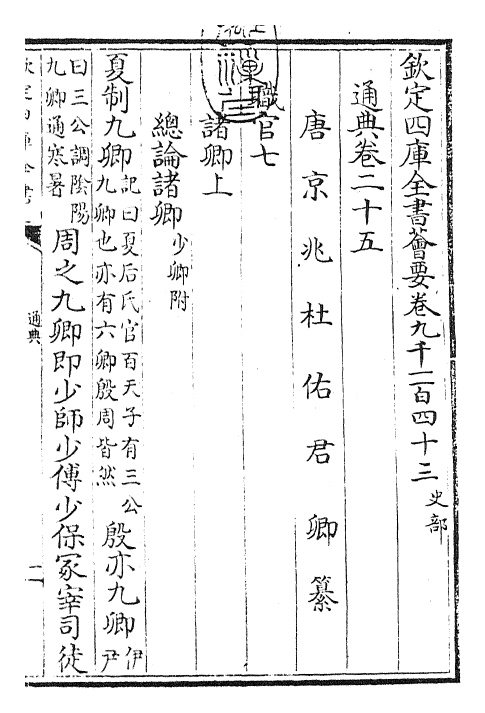 欽定四庫全書薈要卷九千二百四十三 史部
通典卷二十五
唐京兆杜佑君卿纂
職官七
諸卿上
總論諸卿 少卿附
夏制九卿 記曰夏后氏官百天子有三公
九卿也亦有六卿殷周皆然 殷亦九卿 伊尹
曰三公調陰陽
九卿通寒暑 周之九卿即少師少傅少保冢宰司徒
欽定四庫全書
通典